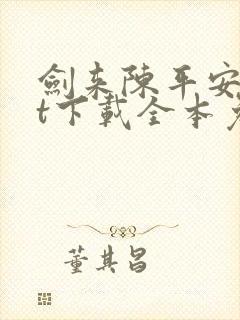 劍来陳平安
t下載全本
董其昌